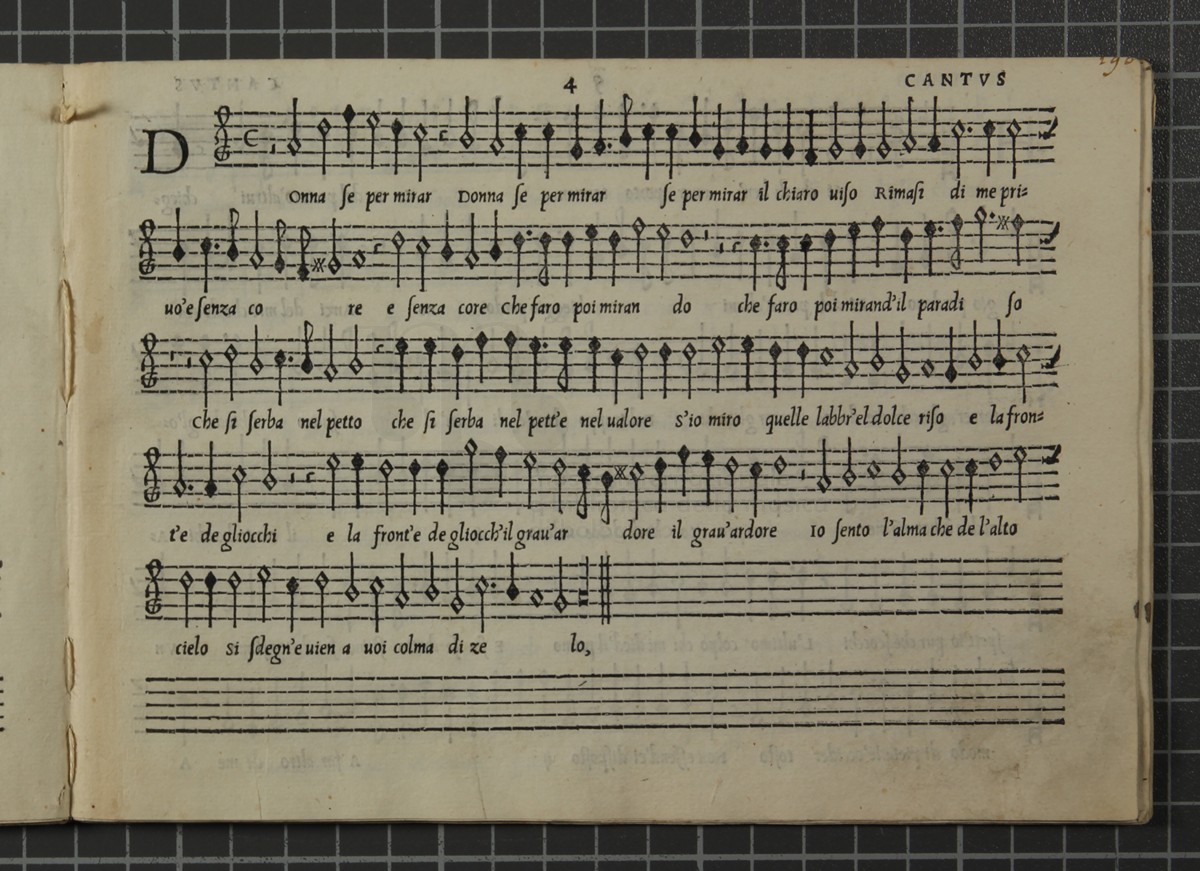 4 CANTVS
DOnna ſe per mirar Donna ſe per mirar ſe per mirar il chiaro uiſo Rimaſi di me pri=
uo'e ſenza co re e ſenza core Che faro poi miran do che faro poi mirand'il paradi ſo
Che ſi ſerba nel petto che ſi ſerba nel pett'e nel ualore S'io miro quelle labbr'el dolce riſo e la fron=
t'e de gliocchi e la front'e de gliocch'il grau'ar dore il grau'ardore Io ſento l'alma che de l'alto
cielo Si ſdegn'e uien a uoi colma di ze lo,